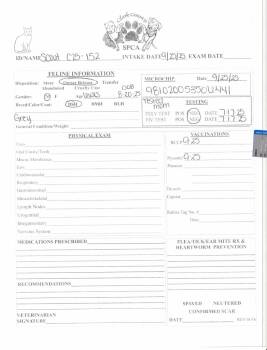 Clark County
SPCA
ID/NAME Scout C25-152 INTAKE DATE 9/25/25 EXAM DATE
FELINE INFORMATION
Disposition: Stray Owner Release Transfer
Abandoned Cruelty Case
Gender: M F Age DOB 8-20-25
Breed/Color/Coat: DSH DMH DLH
Grey
General Condition/Weight:
MICROCHIP Date 9/25/25
981020053506441
Tested mom
TESTING
FELV TEST POS NEG DATE 7-17-25
FIV TEST POS NEG DATE 7-17-25
PHYSICAL EXAM
Eyes
Oral Cavity/Teeth
Mucus Membranes
Ears
Cardiovascular
Respiratory
Gastrointestinal
Musculoskeletal
Lymph Nodes
Urogenital
Integumentary
Nervous System
VACCINATIONS
9-25
9-25
Rabies Tag No. #
Date
MEDICATIONS PRESCRIBED
FLEA/TICK/EAR MITE RX &
HEARTWORM PREVENTION
RECOMMENDATIONS
SPAYED NEUTERED
CONFIRMED SCAR
VETERINARIAN
SIGNATURE
DATE